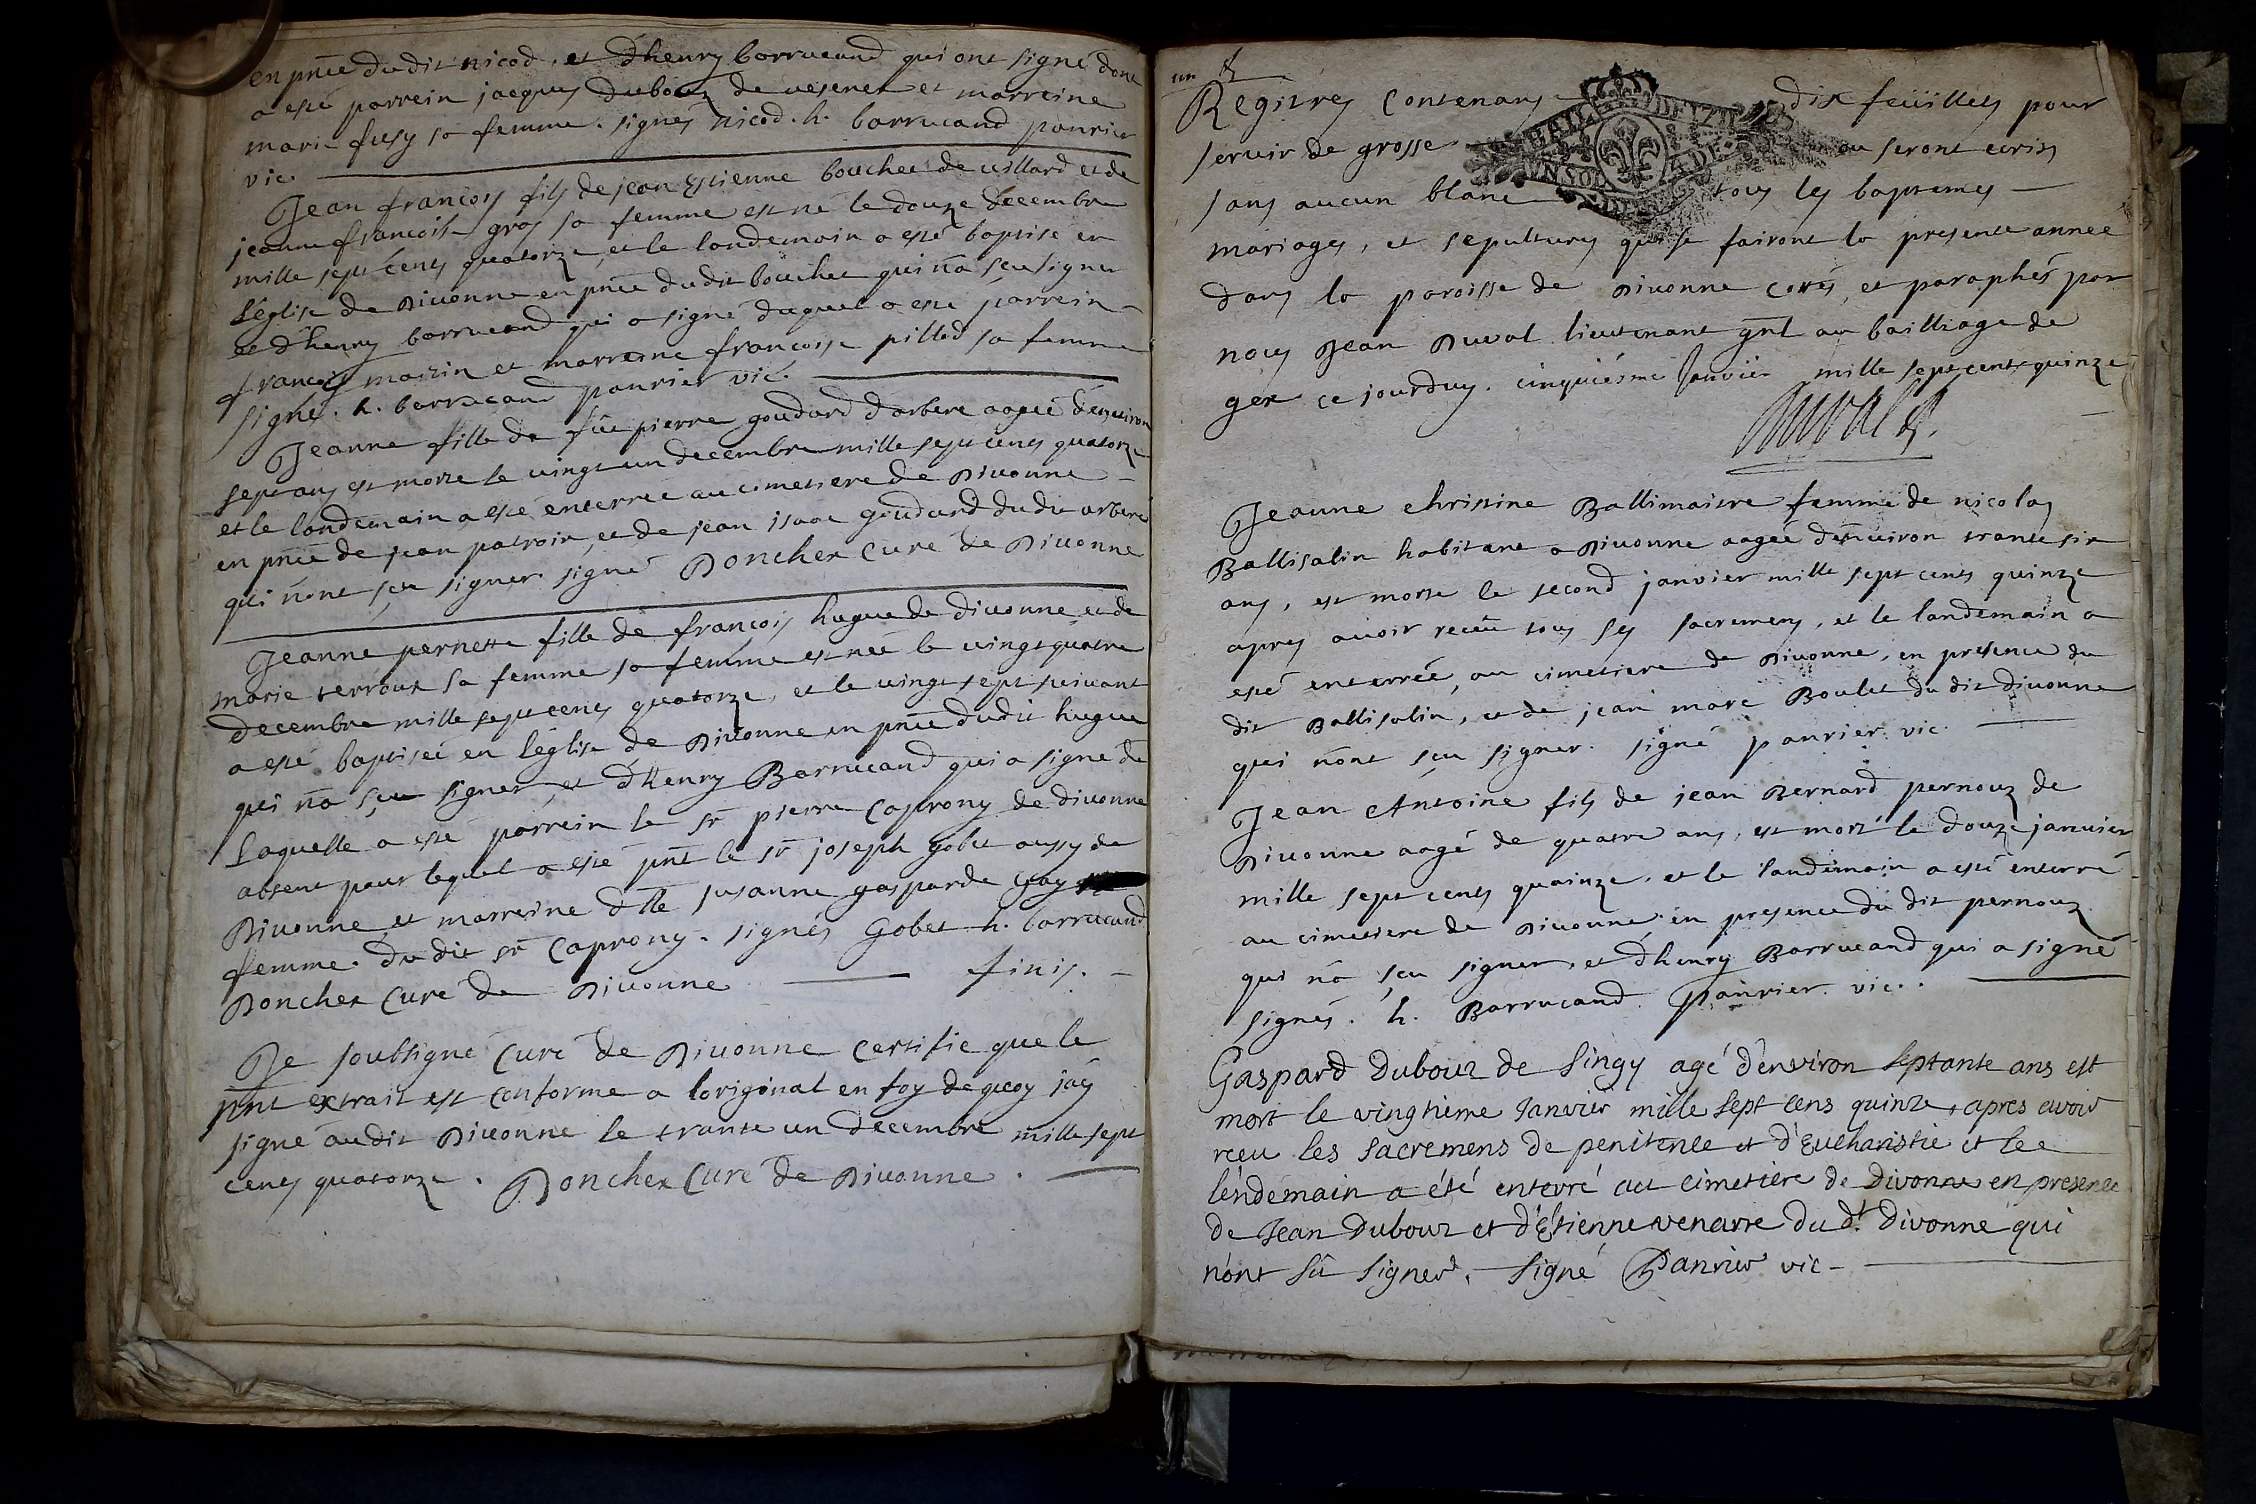 en pnce du dit nicod, et d'henry borrucand qui ont signé dont
a esté parrein jacques dubouz de vesenex et marreine
marie fusy sa femme. signés nicod. h. borrucand panrier
vic.
Jean françois fils de jean estienne bouchet de villard et de
jeanne françoise gros sa femme est né le douze decembre
mille sept cents quatorze, et le landemain a esté baptisé en
l'église de Divonne en pnce du dit bouchet qui n'a sçeu signer
et d'henry borrucand qui a signé duquel a esté parrein
françois et marreine françoise pillod sa femme
signé. h. borrucand panrier vic.
Jeanne fille de fûe pierre goudard d'arbere aagée d'environ
sept ans est morte le vingt un decembre mille sept cents quatorze
et le landemain a esté enterrée au cimetiere de Divonne
en pnce de jean patroin, et de jean isaac goudard du dit arbere
qui n'ont sçeu signer. signé Donchex Curé de Divonne
Jeanne pernette fille de françois hugue de divonne et de
marie terroux sa femme sa femme est née le vingt quatre
decembre mille sept cents quatorze, et le vingt sept suivant
a esté baptisée en l'église de Divonne en pnce du dit hugue
qui n'a sçeu signer, et d'henry Borrucand qui a signé de
laquelle a esté parrein le sr pierre Caprony de divonne
absent pour lequel a esté pnt le sr joseph gobet aussy de
Divonne, et marreine dlle susanne gasparde
femme du dit sr Caprony. signés Gobet h. borrucand
Donchex Curé de Divonne finis.
Je soubsigné Curé de Divonne certifie que le
pnt extrait est conforme a lorigínal en foy de quoy j'aÿ
signé audit Divonne le trante un decembre mille sept
cents quatorze. Donchex Curé de Divonne.
un
Regitres Contenans dix feüillets pour
servir de grosse ou seront ecris
sans aucun blanc tous les baptemes
mariages, et sepultures qui se fairont la presente année
dans la paroisse de Divonne cotés, et paraphés par
nous Jean Duval lieutenant gnl au bailliage de
gex ce jourduy. cinquiésme Janvier mille sept cents quinze
Duval
Jeanne christine Ballimaitre femme de nicolas
Ballisalin habitant a Divonne aagée d'environ trante six
ans, est morte le second janvier mille sept cents quinze
apres avoir receu tous ses sacremens, et le landemain a
esté enterrée, au cimetiere de Divonne, en presence du
dit Ballisalin, et de jean marc Boulet du dit divonne
qui n'ont sçeu signer. signé panrier vic.
Jean Antoine fils de jean Bernard pernouz de
Divonne aagé de quatre ans, est mort le douze janvier
mille sept cents quainze. et le landemain a esté enterré
au cimetiere de Divonne en presence du dit pernouz
qui n'a sçeu signer, et d'henry Borrucand qui a signé
signés. h. Borrucand panrier vic.
Gaspard Dubouz de Singy agé d'environ septante ans est
mort le vingtième Janvier mille sept cens quinze, apres avoir
rceu les sacremens de penitence et d'Eucharistie et le
lendemain a été enterré au cimetière de Divonne en presence
de Jean Dubouz et d'Étienne venarre du dt. Divonne qui
n'ont sû signer. signé Panrier vic